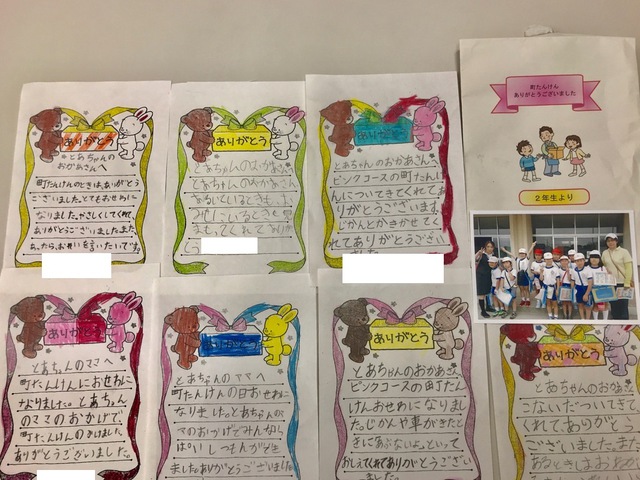 ありがとう
とあちゃんの
おかあさんへ
町たんけんのときは、ありがとう
ございました。とてもおせわに
なりました。やさしくしてくれて、
ありがとうございました。また
ありがとう
とあちゃんのおかあさんへ
とあちゃんのおかあさん
あるいているときも、
ありがとう
とあちゃんのおかあさん
ピンクコースの町たんけ
んについてきてくれてあ
りがとうございます。
じかんとかきかせてく
れてありがとうござい
ました。
町たんけん
ありがとうございました
2年生より
ありがとう
とあちゃんのママへ
町たんけんにおせわに
なりました。とあちゃん
のママのおかげで
町たんけんのきけました
ありがとうございました。
とあちゃんのママへ
町たんけんの日おせわに
なりました。とあちゃんの
ママのおかげでみんない
っぱいしつもんができ
ました。ありがとうございました
ありがとう
とあちゃんのおかあさん
ピンクコースの町たん
けんおせわになりまし
た。じかんや車がきたと
きにあぶないよ。といって
おしえてくれてありがとうござい
ました。
ありがとう
とあちゃんのおかあさ
こないだついてきて
くれて、ありがとう
ございました。また
あるときは